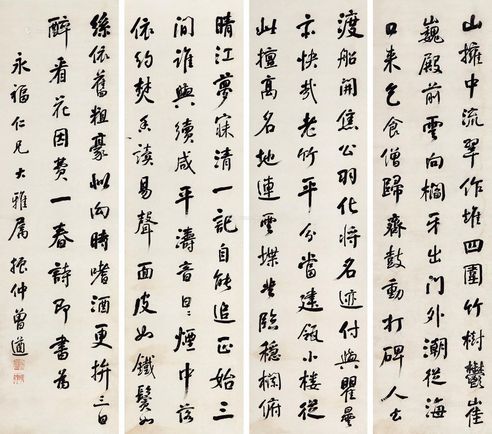 山擁中流翠作堆四圍竹樹鬱崔
巍殿前雲向櫩牙出門外潮從海
口来乞食僧歸齋鼓動打碑人去
渡船開焦公羽化將名迹付與瞿曇
亦快哉老竹平分當建瓴小樓從
此擅高名地連雲堞坐臨穩欄俯
晴江夢寐清一記自能追正始三
間誰與續咸平濤音日日煙中落
依約焚香讀易聲面皮如鐵鬢如
絲依舊粗豪似向時嗜酒更拚三日
醉看花因費一春詩即書為
永福仁兄大雅屬 振仲曾遒